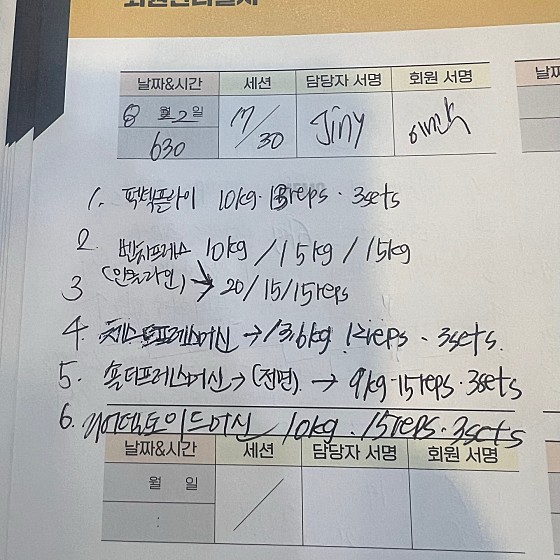 회원관리일지
날짜&시간 세션 담당자 서명 회원 서명 날짜
8 월 2 일 17/30 Jiny
630
1. 펙덱플라이 10kg · 15reps · 3sets
2. 벤치프레스 10kg / 15kg / 15kg
3 (인클라인) → 20/15/15reps
4. 체스트프레스머신 → 13.6kg 12reps - 3sets.
5. 숄더프레스머신 → (전면) → 9kg · 15reps · 3sets
6. 리어델토이드머신 10kg · 15reps · 3sets
날짜&시간 세션 담당자 서명 회원 서명
월 일 /
: